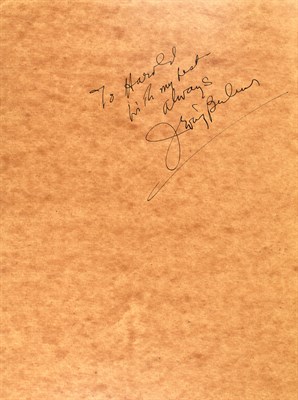 To Harold
with my best
always
Irving Berlin